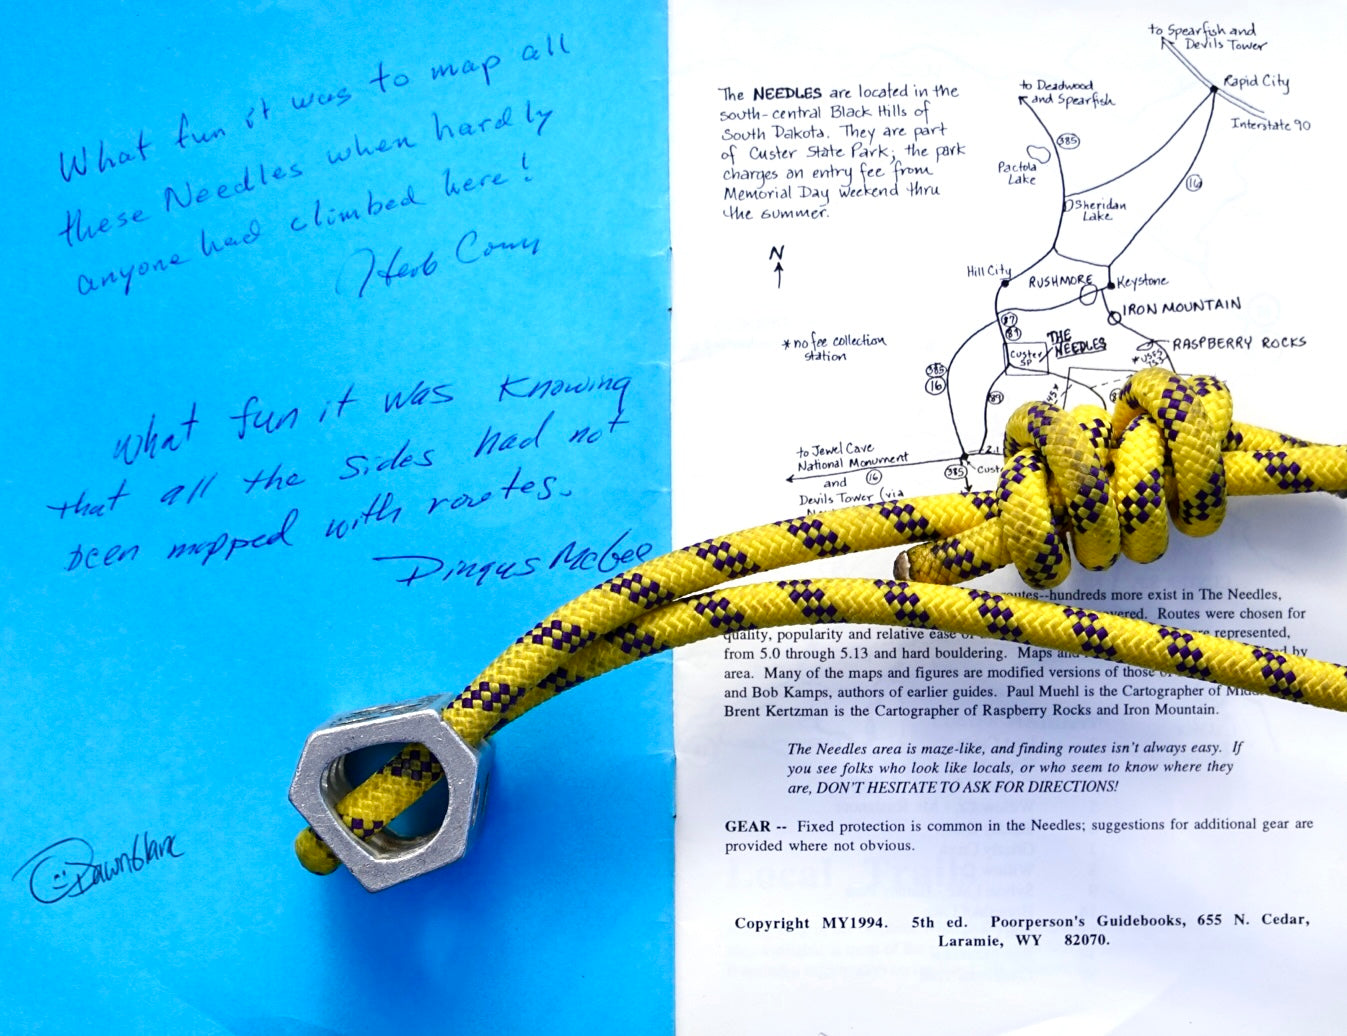 What fun it was to map all
these Needles when hardly
anyone had climbed here!
Herb Conn
What fun it was knowing
that all the sides had not
been mapped with routes.
Dingus McGee
DawnGlanc
The NEEDLES are located in the
south-central Black Hills of
South Dakota. They are part
of Custer State Park; the park
charges an entry fee from
Memorial Day weekend thru
the summer.
N
* no fee collection
station
to Spearfish and
Devils Tower
Rapid City
Interstate 90
to Deadwood
and Spearfish
385
Pactola
Lake
16
Sheridan
Lake
Hill City
RUSHMORE
Keystone
IRON MOUNTAIN
87
THE
NEEDLES
Custer
SP
RASPBERRY ROCKS
385
16
to Jewel Cave
National Monument
16
and
Devils Tower (via
385
routes--hundreds more exist in The Needles,
Routes were chosen for
quality, popularity and relative ease
represented,
from 5.0 through 5.13 and hard bouldering. Maps
by
area. Many of the maps and figures are modified versions of those
and Bob Kamps, authors of earlier guides. Paul Muehl is the Cartographer of
Brent Kertzman is the Cartographer of Raspberry Rocks and Iron Mountain.
The Needles area is maze-like, and finding routes isn't always easy. If
you see folks who look like locals, or who seem to know where they
are, DON'T HESITATE TO ASK FOR DIRECTIONS!
GEAR -- Fixed protection is common in the Needles; suggestions for additional gear are
provided where not obvious.
Copyright MY1994. 5th ed. Poorperson's Guidebooks, 655 N. Cedar,
Laramie, WY 82070.